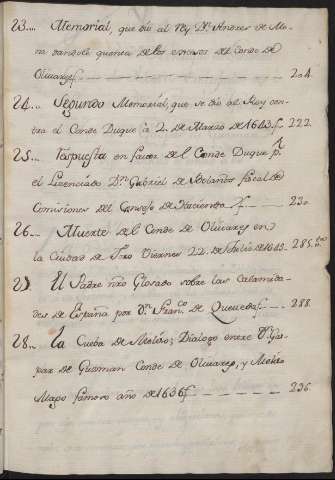 23... Memorial, que dio al Rey Dn. Andres de Me-
na dandole quenta de los excesos del Conde de
Olivares — 204.
24... Segundo Memorial, que se dio al Rey con-
tra el Conde Duque à 2. de Marzo de 1643 — 222.
25... Respuesta en favor del Conde Duque pr.
el Licenciado Dn. Gabriel de Bolaños fiscal de
Comisiones del Consejo de Hacienda — 230.
26... Muerte del Conde de Olivares en
la Ciudad de Toro Viernes 22. de Julio de 1645 - 285.
27... El Padre nro Glosado sobre las Calamida-
des de España por Dn. Franco. de Quevedo — 288.
28... La Cueba de Meliso; Dialogo entre Dn. Gas-
par de Guzman Conde de Olivares, y Meliso
Mago famoso año de 1636 — 296